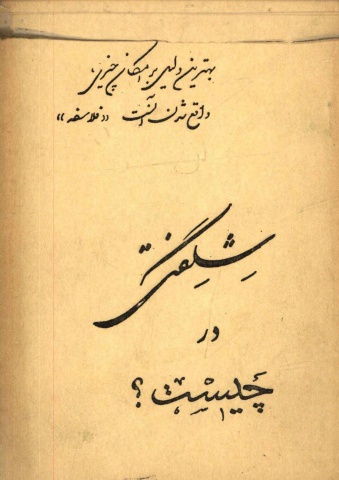 بهترین دلیل بر امکان چیزی،
واقع شدن آنست «فلاسفه»
شِلِفتَن
در
چَیِست؟